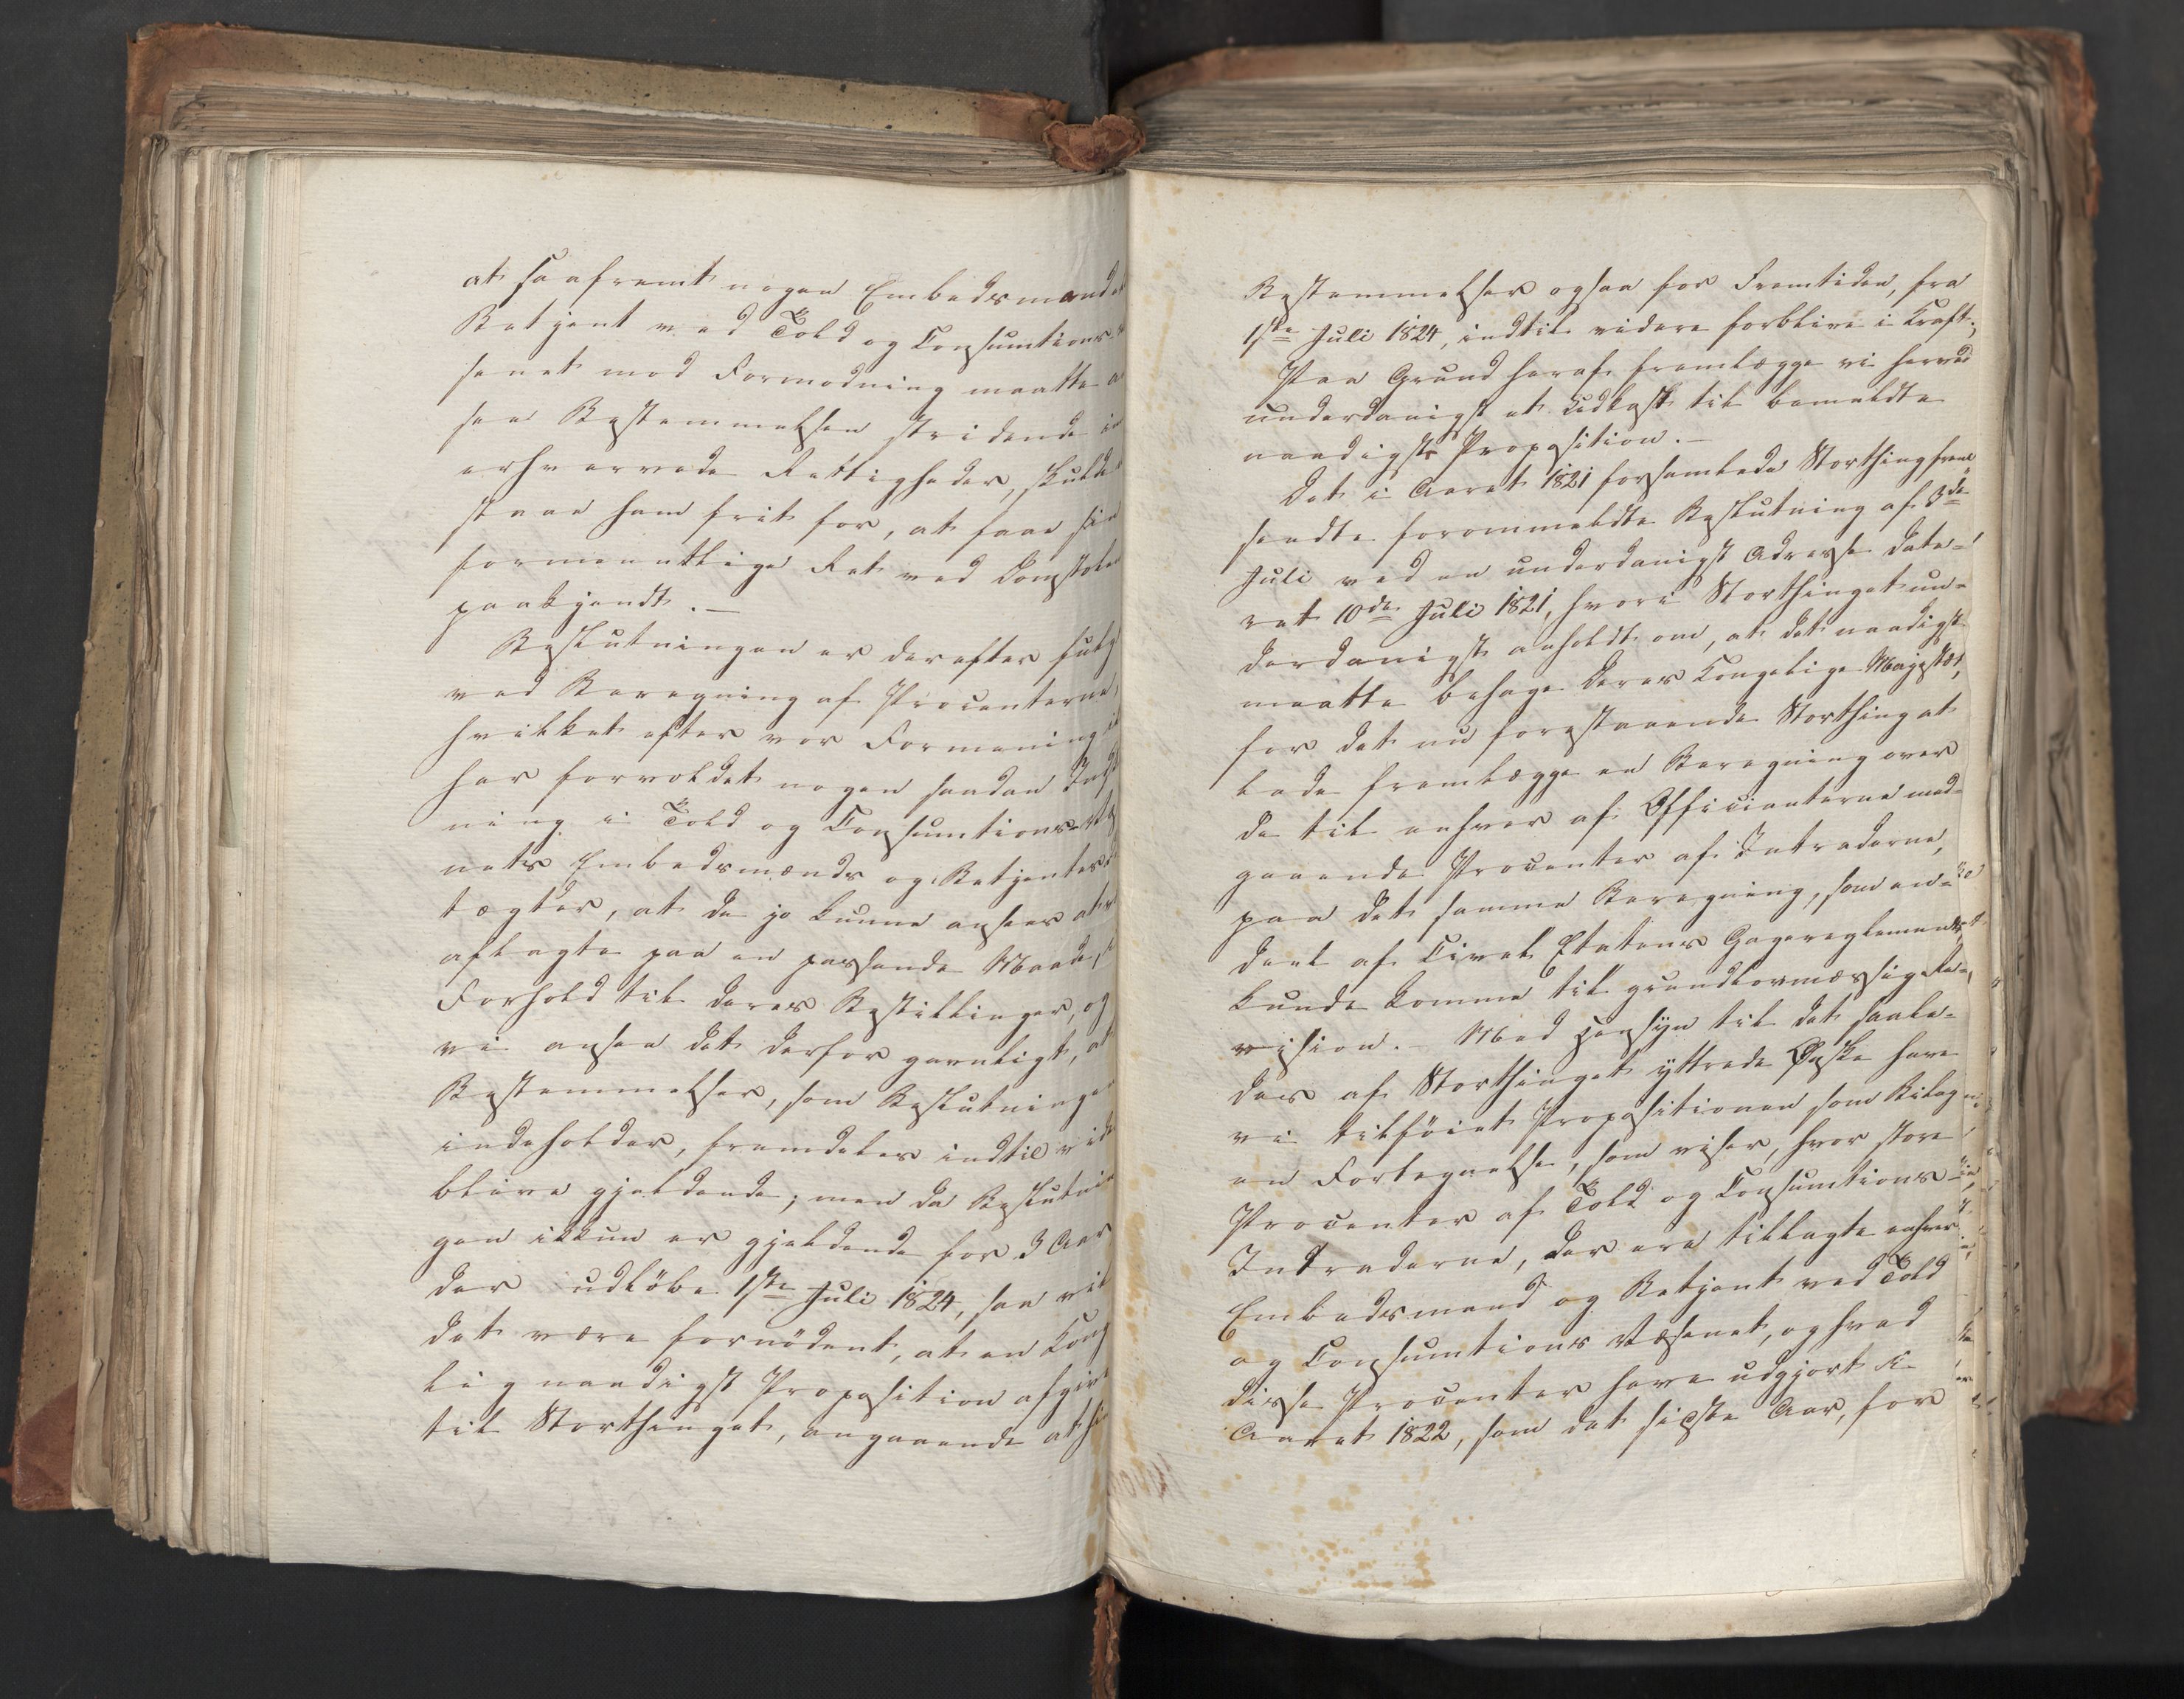 at saafremt nogen Embedsmand el
Betjent ved Told og Consumtions-
senet mod Formodning maatte a
see Bestemmelsen stridende i
erhvervede Rettigheder, skulde
staae ham frit for, at faae sin
formeentlige Ret ved Domstolen
paakjendt. —
Beslutningen er derefter fulg
ved Beregning af Procenterne,
hvilket efter vor Formening i
har forvoldet nogen saadan Ind
ning i Told og Consumtions-Væ
nets Embedsmænds og Betjentes
tægter, at de jo kunne ansees at
aflagte paa en passende Maade,
Forhold til deres Bestillinger, og
vi ansee det derfor gavnligt, at
Bestemmelser, som Beslutningen
indeholder, fremdeles indtil vide
blive gjeldende; men da Beslutnin
gen ikkun er gjeldende for 3 Aar
der udløbe 1ste Juli 1824, saa vil
det være fornødent, at en Konge
lig naadigst Proposition afgive
til Storthinget, angaaende at
Bestemmelser ogsaa for Fremtiden, fra
1ste Juli 1824, indtil videre forblive i Kraft;
Paa Grund heraf fremlægge vi herved
underdanigst et Udkast til bemeldte
naadigste Proposition. —
Det i Aaret 1821 forsamlede Storthing frem
sendte forommeldte Beslutning af 3de
Juli ved en underdanigst Adresse date-
ret 10de Juli 1821, hvori Storthinget un-
derdanigst anholdt om, at det naadigst
maatte behage Deres Kongelige Majestæt,
for det nu forestaaende Storthing at
lade fremlægge en Beregning over
de til enhver af Officianterne med-
gaaende Procenter af Intraderne,
paa det samme Beregning, som en
Deel af Civil Etatens Gagereglement,
kunde komme til grundlovmæssig Re-
vision. — Med Hensyn til det saale-
des af Storthinget yttrede Ønske have
vi tilføiet Propositionen som Bilag
en Fortegnelse, som viser, hvor store
Procenter af Told og Consumtions-
Intraderne, der ere tillagte enhver
Embedsmand og Betjent ved Told
og Consumtions Væsenet, og hvad
disse Procenter have udgjort i
Aaret 1822, som det sidste Aar, for